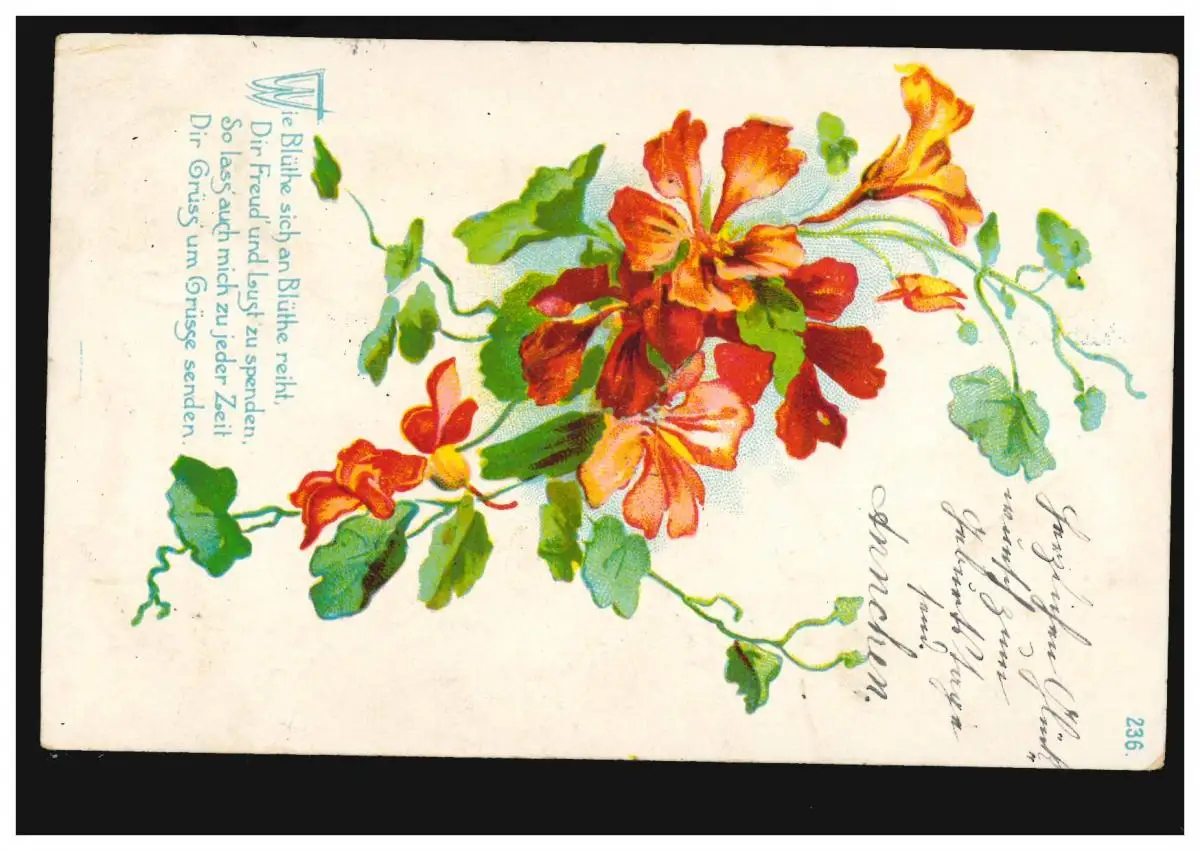 Wie Blüthe sich an Blüthe reiht,
Dir Freud' und Lust zu spenden,
So lass' auch mich zu jeder Zeit
Dir Grüss' um Grüsse senden.
Herzlichen Glück-
wunsch zum
Geburtstage
send.
Annchen.
236.